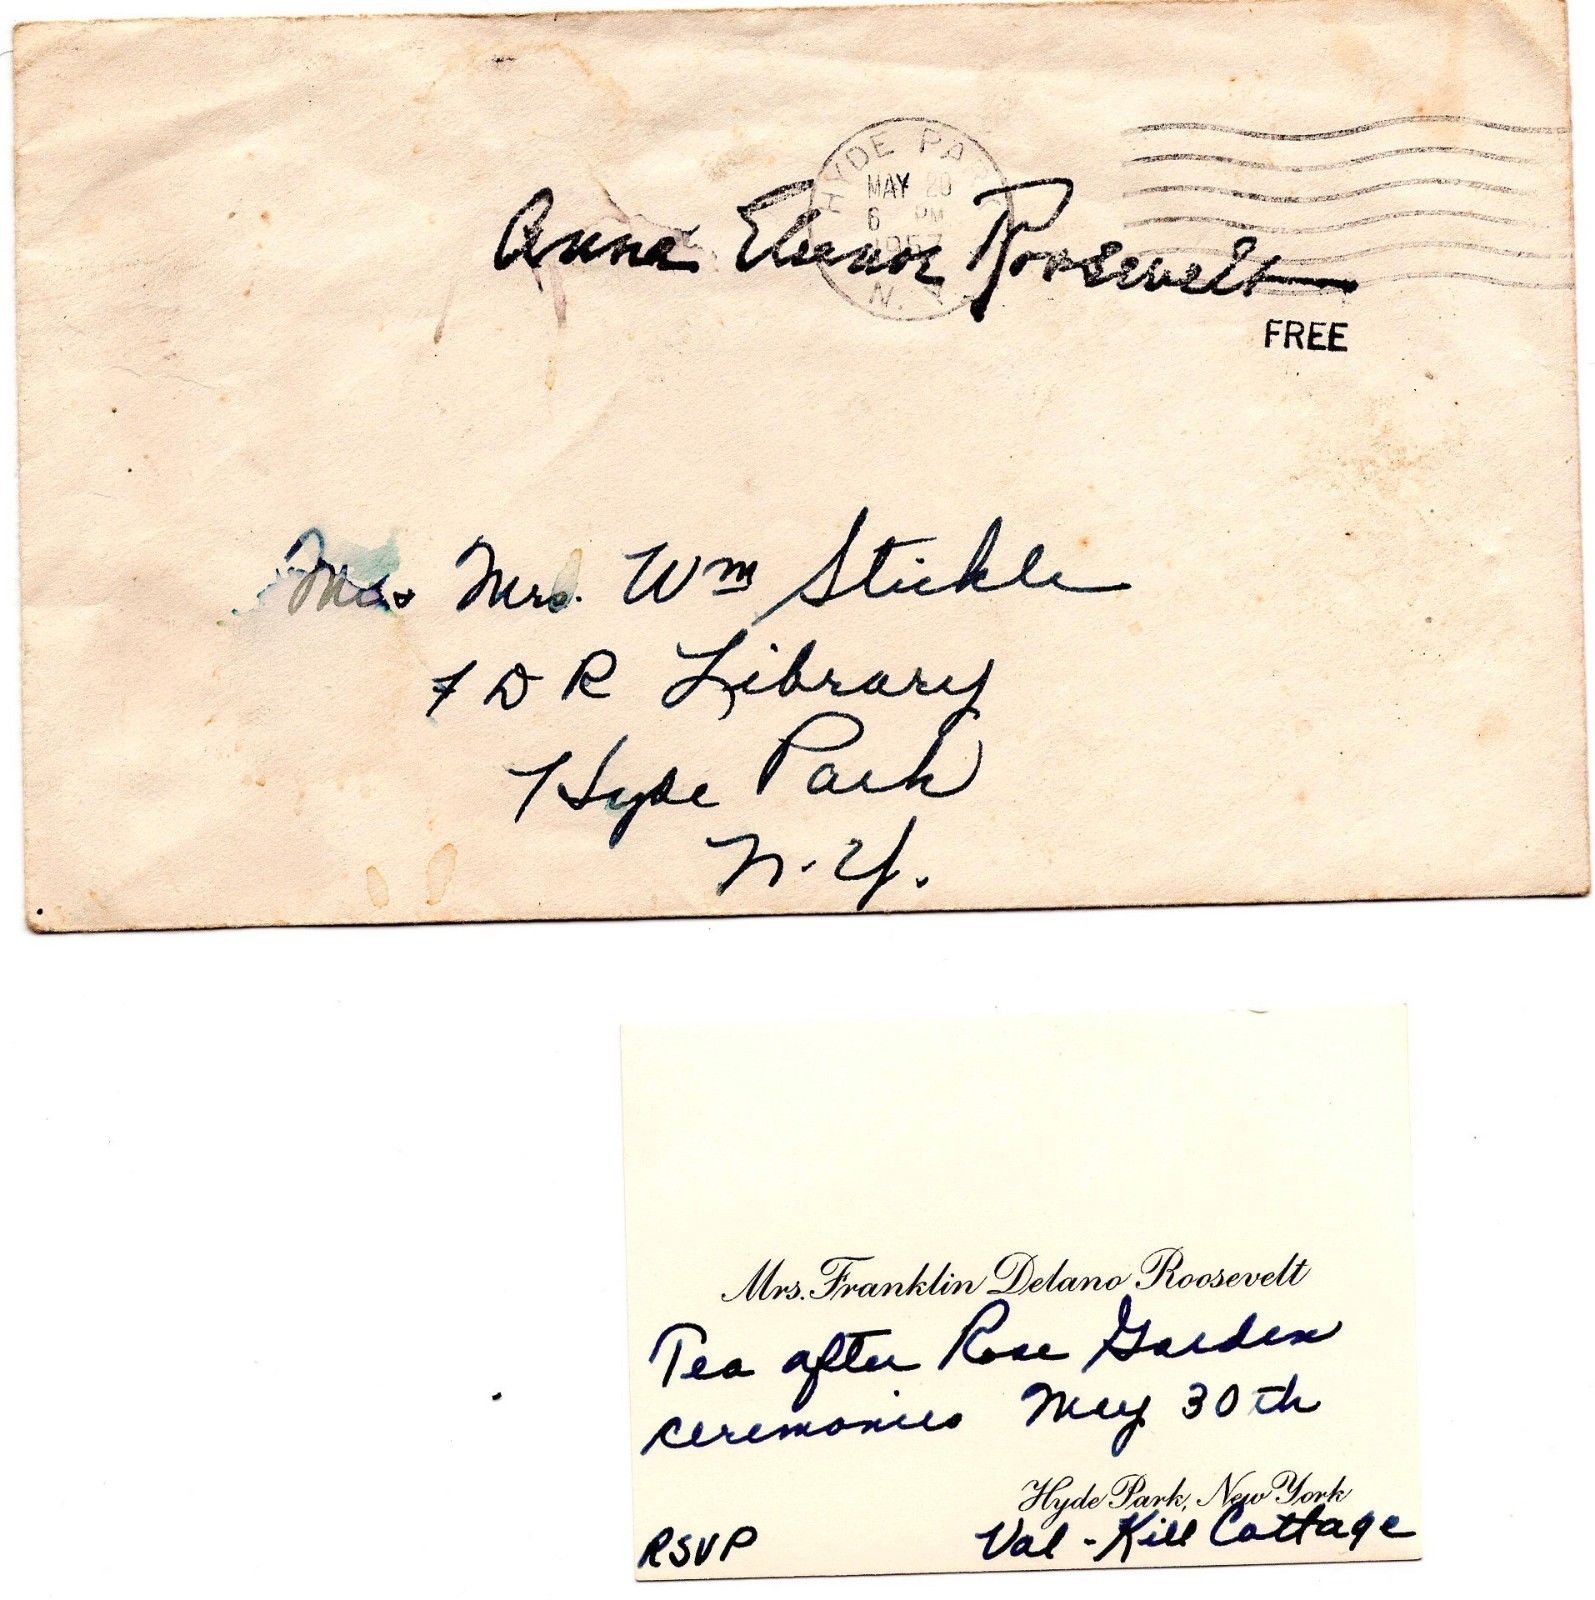 HYDE PARK
MAY 20
6 PM
1957
N.Y.
Anna Eleanor Roosevelt
FREE
Mrs. Wm Stickle
FDR Library
Hyde Park
N.Y.
Mrs. Franklin Delano Roosevelt
Tea after Rose Garden
ceremonies May 30th
Hyde Park, New York
RSVP Val-Kill Cottage